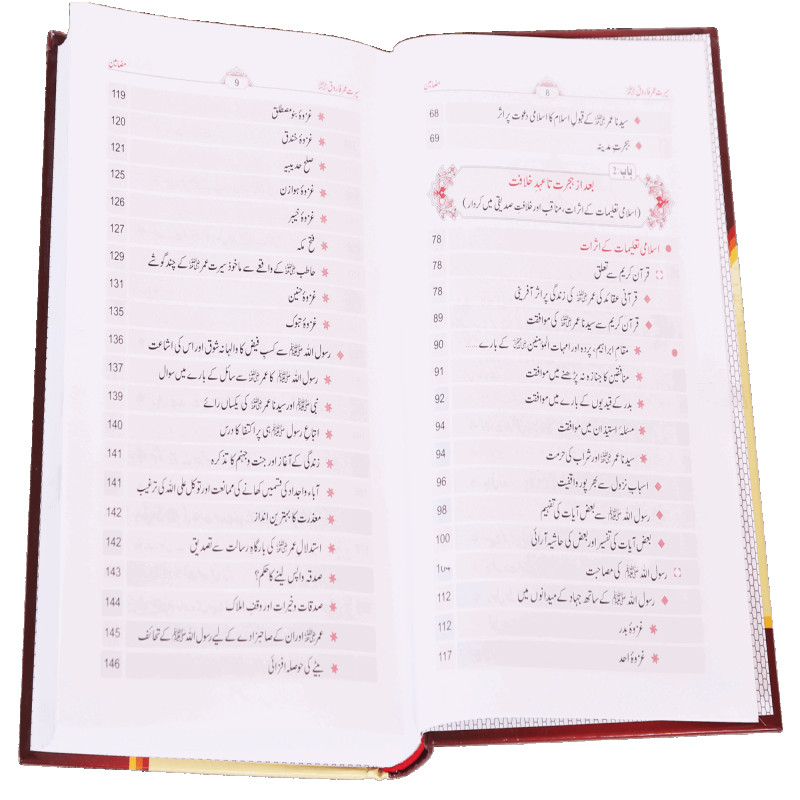 سیرت عمر فاروق ﷜ 8 مضامین
سیدنا عمر ﷜ کے قبولِ اسلام کا اسلامی دعوت پر اثر 68
ہجرتِ مدینہ 69
باب: 2
بعد از ہجرت تا عہدِ خلافت
(اسلامی تعلیمات کے اثرات، مناقب اور خلافتِ صدیقی میں کردار)
اسلامی تعلیمات کے اثرات 78
قرآن کریم سے تعلق 78
قرآنی عقائد کی عمر ﷜ کی زندگی پر اثر آفرینی 78
قرآن کریم سے سیدنا عمر ﷜ کی موافقت 89
مقام ابراہیم، پردہ اور امہات المؤمنین ﷢ کے بارے ...... 90
منافقین کا جنازہ نہ پڑھنے میں موافقت 91
بدر کے قیدیوں کے بارے میں موافقت 92
مسئلۂ استیذان میں موافقت 94
سیدنا عمر ﷜ اور شراب کی حرمت 94
اسباب نزول سے بھرپور واقفیت 96
رسول اللہ ﷺ سے بعض آیات کی تفہیم 98
بعض آیات کی تفسیر اور بعض کی حاشیہ آرائی 100
رسول اللہ ﷺ کی مصاحبت 104
رسول اللہ ﷺ کے ساتھ جہاد کے میدانوں میں 112
غزوۂ بدر 112
غزوۂ احد 117
سیرت عمر فاروق ﷜ 9 مضامین
غزوۂ بنو مصطلق 119
غزوۂ خندق 120
صلح حدیبیہ 121
غزوۂ ہوازن 125
غزوۂ خیبر 126
فتح مکہ 127
حاطب ﷜ کے واقعے سے ماخوذ سیرت عمر ﷜ کے چند گوشے 129
غزوۂ حنین 131
غزوۂ تبوک 135
رسول اللہ ﷺ سے کسبِ فیض کا والہانہ شوق اور اس کی اشاعت 136
رسول اللہ ﷺ کا عمر ﷜ سے سائل کے بارے میں سوال 137
نبی ﷺ اور سیدنا عمر ﷜ کی یکساں رائے 139
اتباعِ رسول ﷺ ہی پر اکتفا کا درس 140
زندگی کے آغاز اور جنت و جہنم کا تذکرہ 141
آباء و اجداد کی قسمیں کھانے کی ممانعت اور توکل علی اللہ کی ترغیب 141
معذرت کا بہترین انداز 142
استدلالِ عمر ﷜ کی بارگاہِ رسالت سے تصدیق 142
صدقہ واپس لینے کا حکم؟ 143
صدقات و خیرات اور وقف املاک 144
عمر ﷜ اور ان کے صاحبزادے کے لیے رسول اللہ ﷺ کے تحائف 145
بیٹے کی حوصلہ افزائی 146